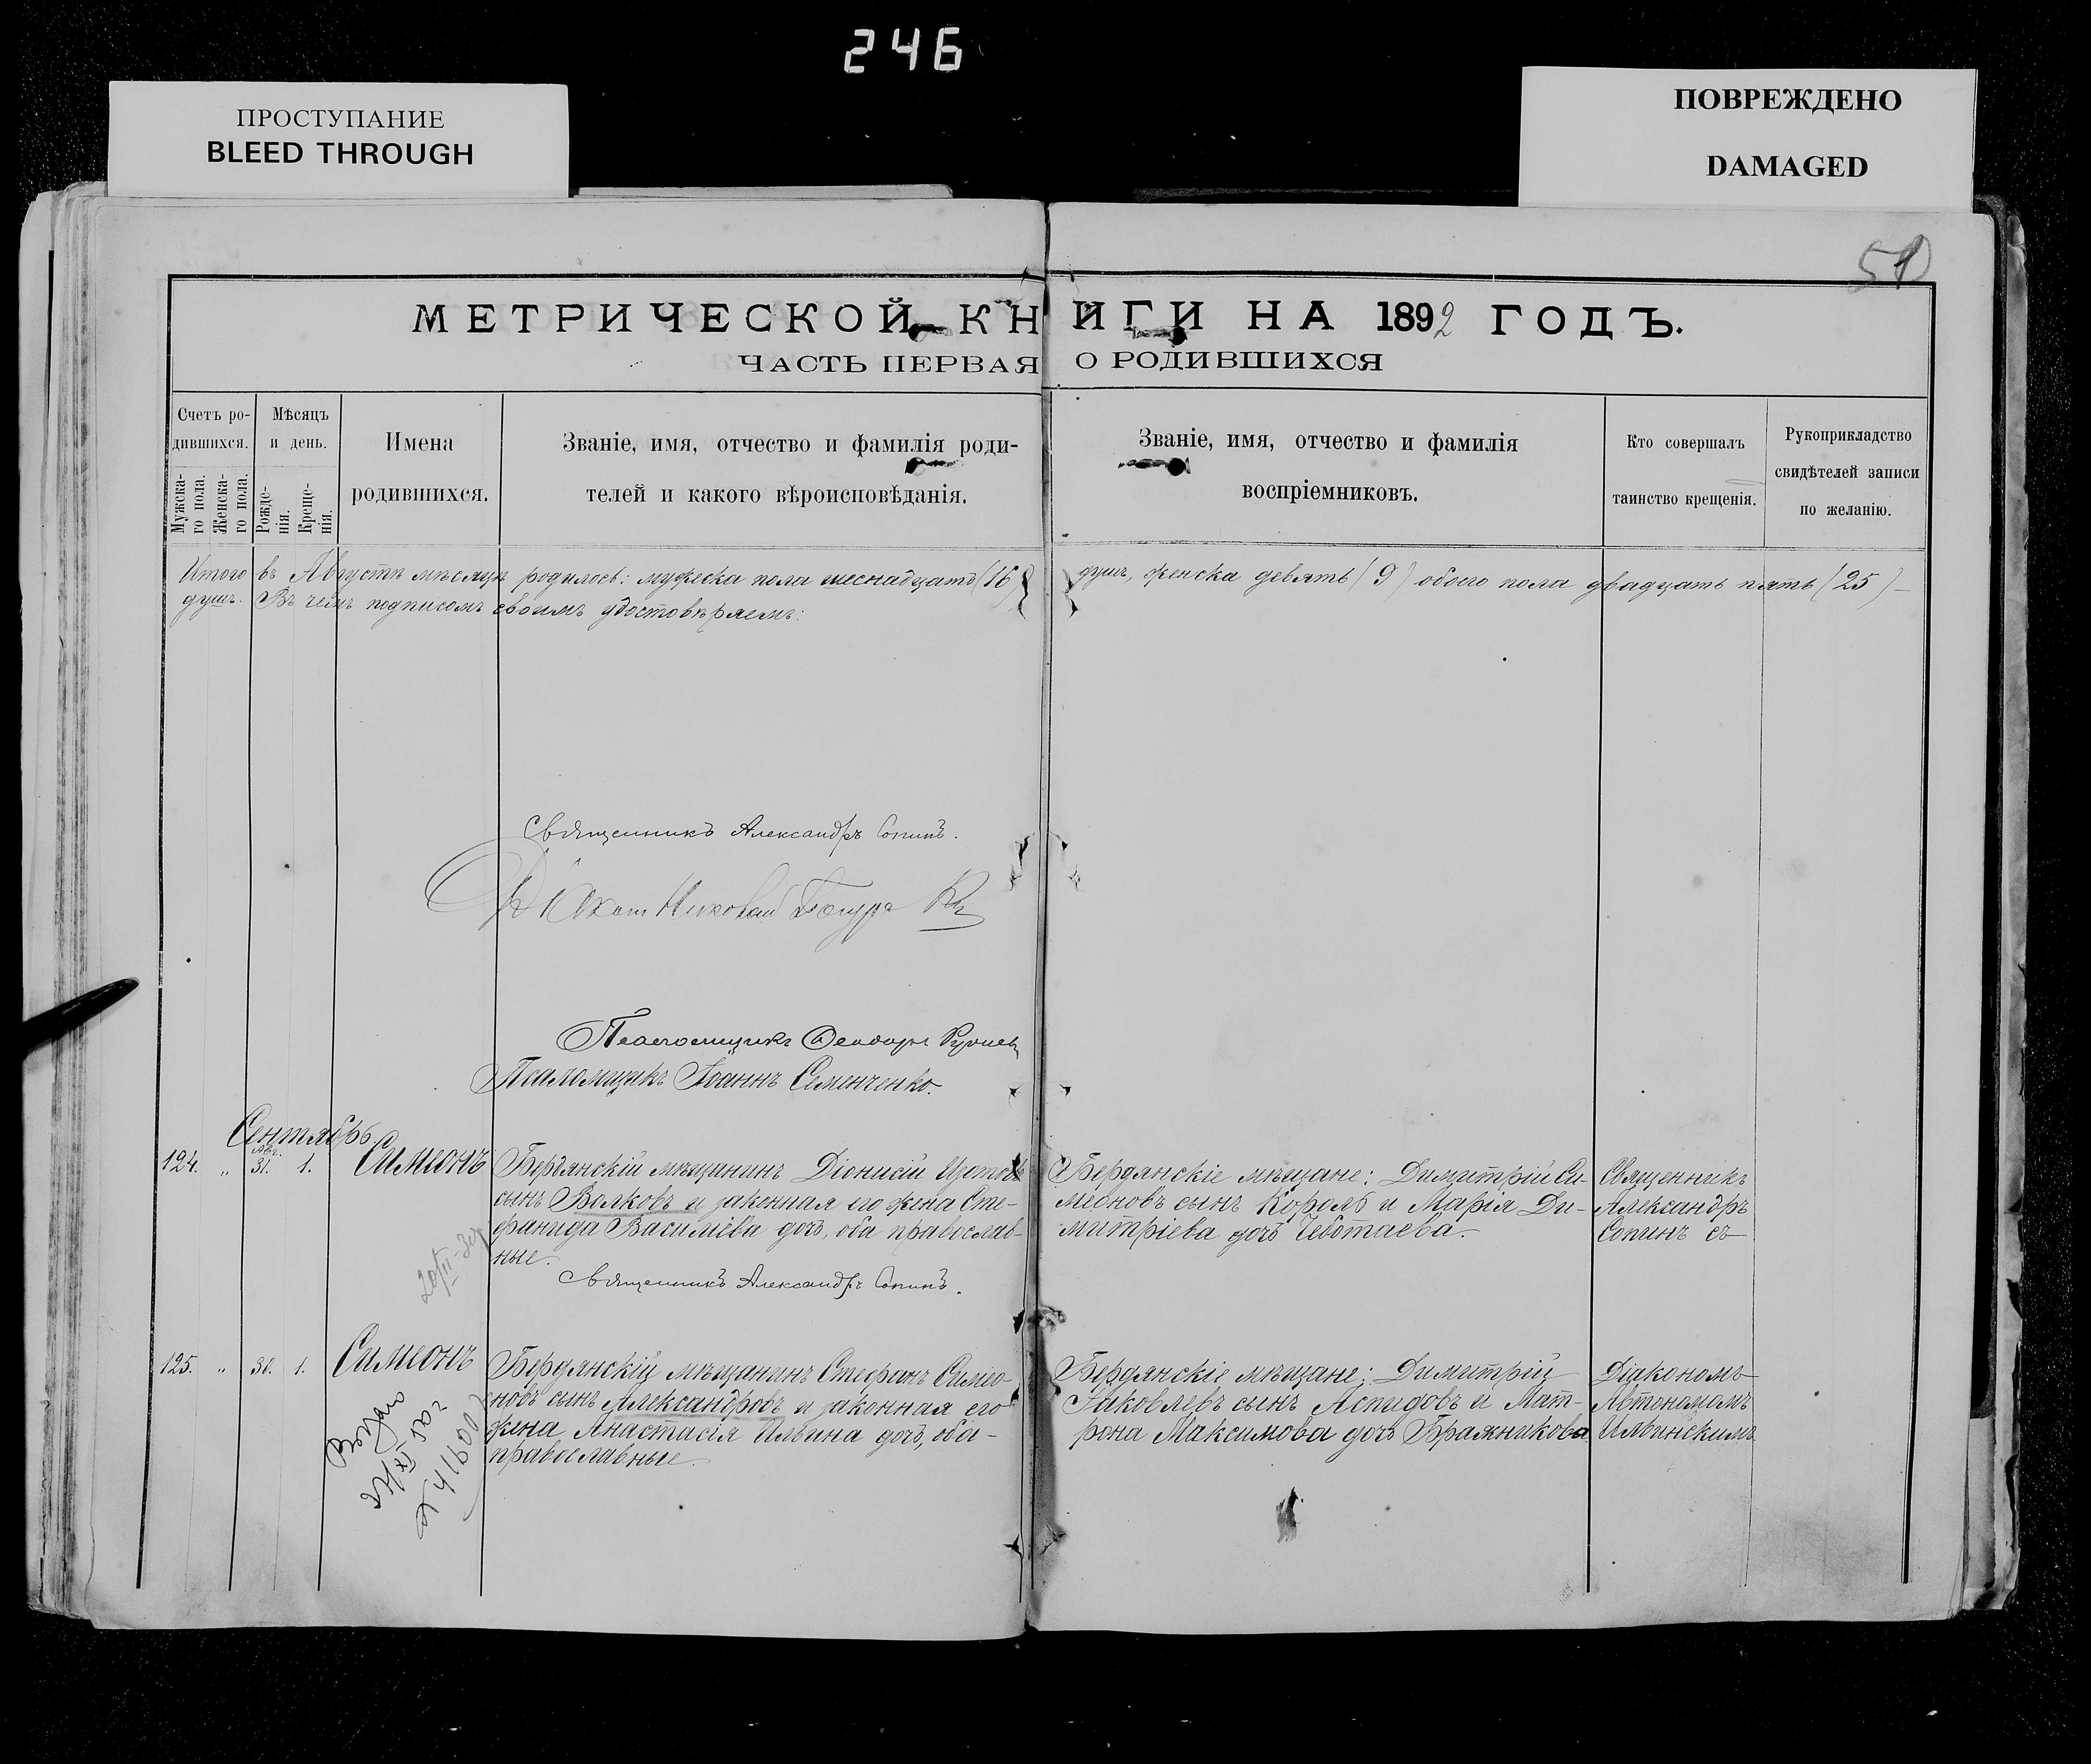 246
ПРОСТУПАНИЕ
BLEED THROUGH
ПОВРЕЖДЕНО
DAMAGED
51
МЕТРИЧЕСКОЙ КНИГИ НА 1892 ГОДЪ.
ЧАСТЬ ПЕРВАЯ О РОДИВШИХСЯ
Счетъ ро-
дившихся.
Мужска-
го пола.
Женска-
го пола.
Мѣсяцъ
и день.
Рожде-
нія.
Креще-
нія.
Имена
родившихся.
Званіе, имя, отчество и фамилія роди-
телей и какого вѣроисповѣданія.
Званіе, имя, отчество и фамилія
воспріемниковъ.
Кто совершалъ
таинство крещенія.
Рукоприкладство
свидѣтелей записи
по желанію.
Итого въ Августѣ мѣсяцѣ родилось: мужеска пола шеснадцать (16) душъ, женска девять (9) обоего пола двадцать пять (25) –
душъ. Въ чемъ подписомъ своимъ удостовѣряемъ:
Священникъ Александръ Сопинъ.
Діаконъ Николай
Псаломщикъ Феодоръ
Псаломщикъ Іоаннъ Семенченко.
Сентябрь.
124. „ Авг. 31. 1. Симеонъ
Бердянскій мѣщанинъ Діонисій Изотовъ
сынъ Волковъ и законная его жена Сте-
фанида Василіева дочь, оба православ-
ные.
Священникъ Александръ Сопинъ.
Бердянскіе мѣщане: Димитрій Си-
меоновъ сынъ Король и Марія Ди-
митріева дочь Чеботаева.
Священникъ
Александръ
Сопинъ съ
125. „ 30. 1. Симеонъ
Бердянскій мѣщанинъ Стефанъ Симео-
новъ сынъ Александровъ и законная его
жена Анастасія Ильина дочь, оба
православные.
Бердянскіе мѣщане: Димитрій
Іаковлевъ сынъ Аспидовъ и Мат-
рона Максимова дочь Бражникова.
Діакономъ
Автономомъ
Ильинскимъ
Видано